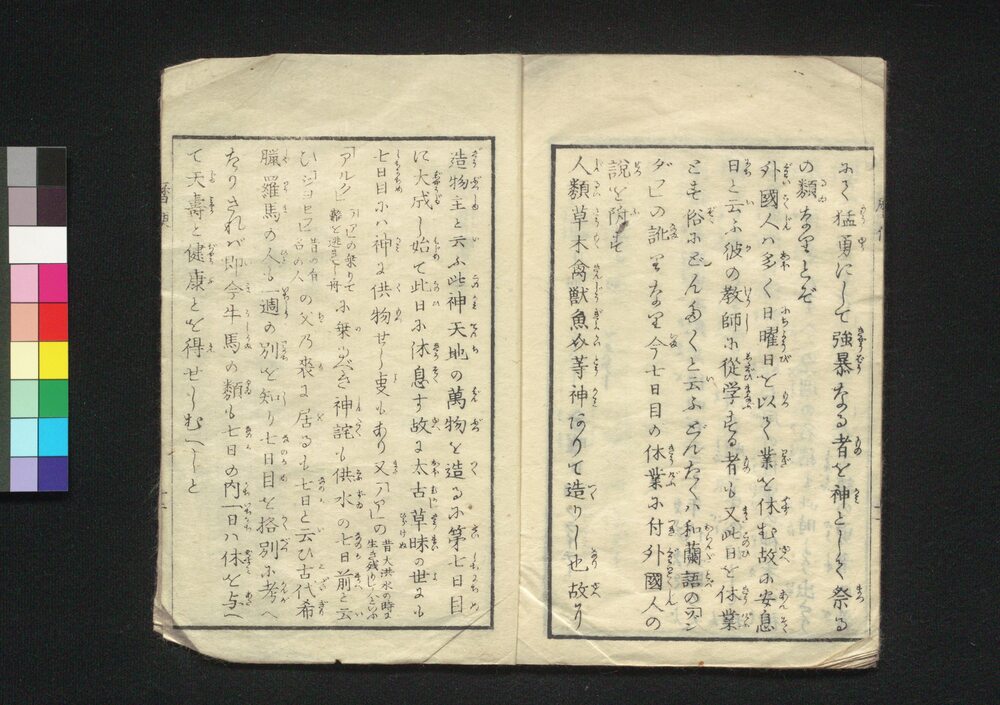 にて猛勇にして強暴なる者を神として祭る
の類なりとぞ
外國人ハ多く日曜日を以て業を休む故に安息
日と云ふ彼の教師に從学する者も又此日を休業
とす俗にどんたくと云ふどんたくハ和蘭語の
の訛りなり今七日目の休業に付外國人の
説を附す
人類草木禽獣魚等神ありて造りし也故に
造物主と云ふ此神天地の萬物を造るに第七日目
に大成し始て此日に休息す故に太古草昧の世にも
七日目にハ神に供物せし事もあり又「ノア」の昔大洪水の時に生き残りし人といふ
「アルク」「ノア」の乗りて難を逃れし舟に乗るべき神詫も供水の七日前と云
ひ「ジヨセフ」昔の有名の人の父乃喪に居るも七日と云ひ古代希
臘羅馬の人も一週の別を知り七日目を格別に考へ
たりされバ即今牛馬の類も七日の内一日ハ休を与へ
て天壽と健康とを得せしむべしと